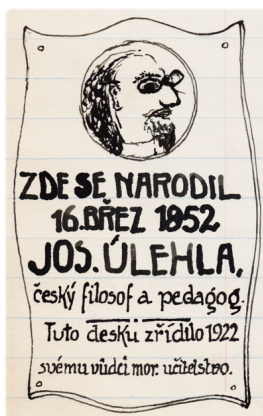 ZDE SE NARODIL
16. BŘEZ 1852
JOS. ÚLEHLA,
český filosof a pedagog.
Tuto desku zřídilo 1922
svému vůdci mor. učitelstvo.